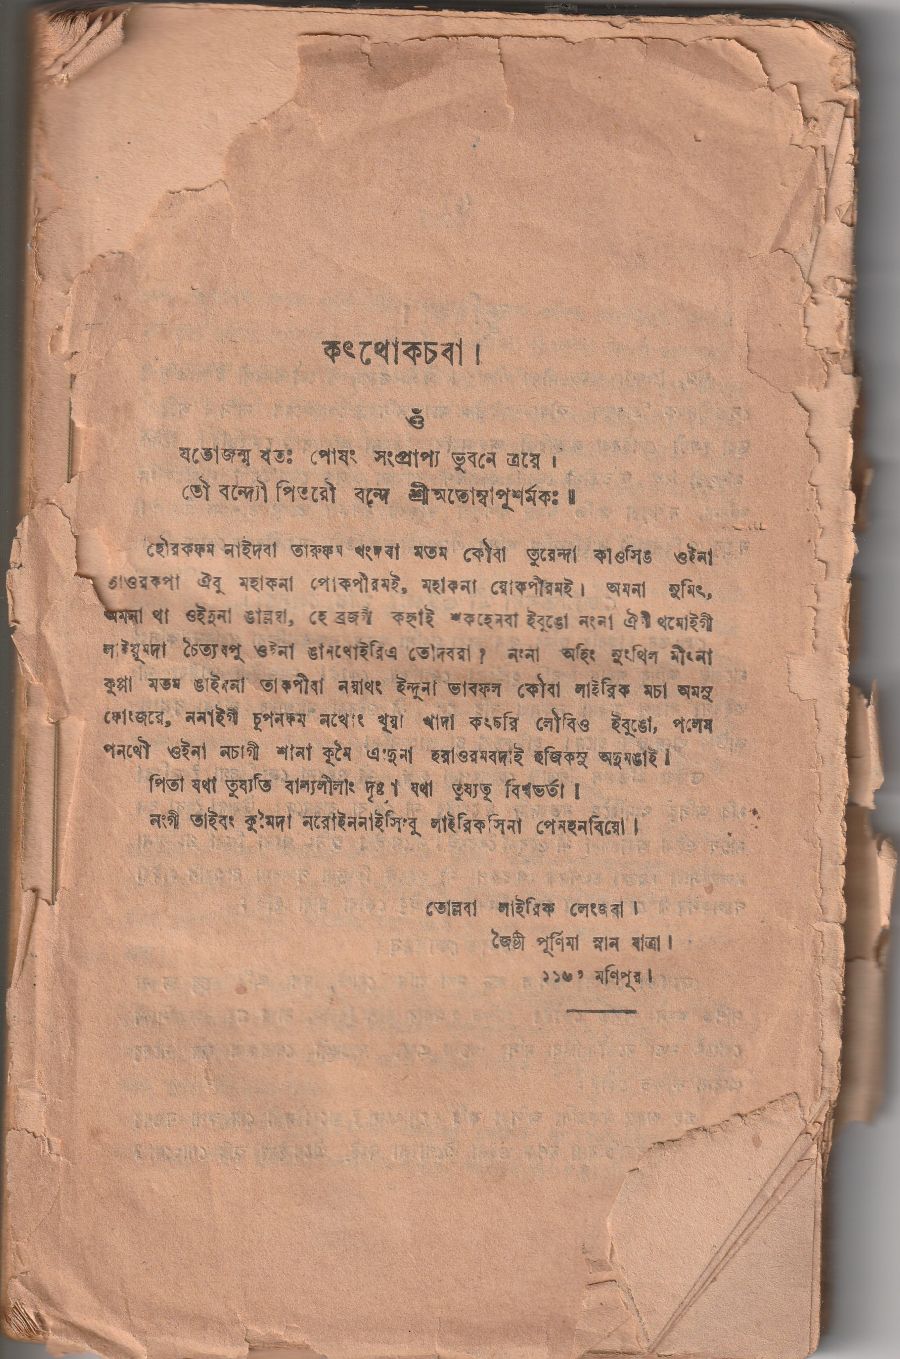 কৎথোকচবা।
ওঁ
যতোজন্ম যতঃ পোষং সংপ্রাপ্য ভুবনে ত্রয়ে।
তৌ বন্দ্যৌ পিতরৌ বন্দে শ্রীঅতোম্বাপুশর্ম্মকঃ॥
হৌরকফম নাইদবা তারুফম খংদবা মতম কৌবা তুরেন্দা কাওসিঙ ওইনা
তাওরকপা ঐবু মহাকনা পোকপীরমই, মহাকনা য়োকপীরমই। অমনা সুমিৎ,
অমনা থা ওইদুনা ঙাল্লবা, হে ব্রজগী কহ্নাই শকহেনবা ইবুঙো নংনা ঐগী থমোইগী
লাইয়ুমদা চৈত্যবপু ওইনা ঙানথোইরিএ তৌদবরা? নংনা অহিং নুংথিল মীৎনা
কুপ্না মতম ঙাইদনা তাকপীবা নয়াথং ইন্দুনা ভাবফল কৌবা লাইরিক মচা অমসু
ফোংজরে, ননাইগী চূপনফম নখোং খুয়া খাদা কৎচরি লৌবিও ইবুঙো, পলেম
পনথৌ ওইনা নচাগী শানা কুমৈ এদুনা হরাওরমবদাই হুজিকসু অদুমঙাই।
পিতা যথা তুষ্যতি বাল্যলীলাং দৃষ্ট্বা যথা তুষ্যতু বিশ্বভর্তা।
নংগী তাইবং কুমৈদা নরোইননাইসিংবু লাইরিকসিনা পেনহনবিয়ো।
তোল্লবা লাইরিক লেংজবা।
জৈষ্ঠী পূর্ণিমা স্নান যাত্রা।
মণিপুর।